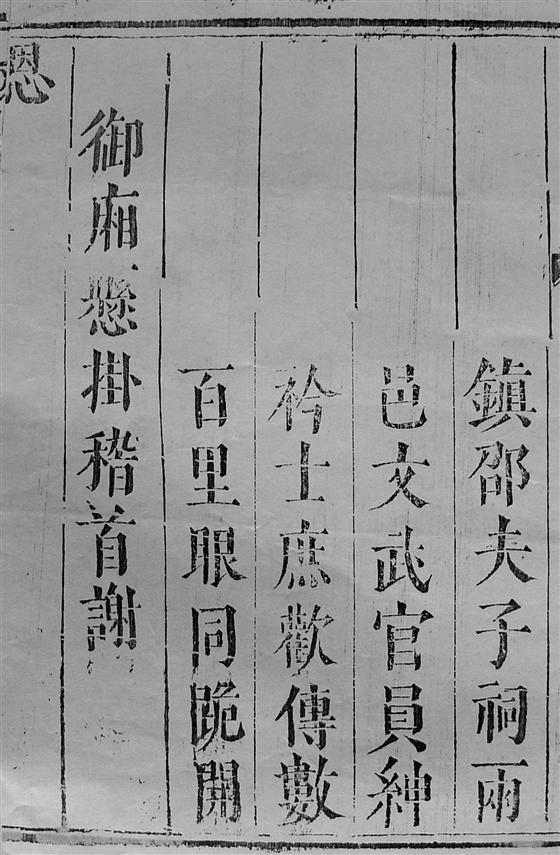 鎮邵夫子祠兩
邑文武官員紳
衿士庶歡傳數
百里眼同跪開
御廂懸掛稽首謝
恩